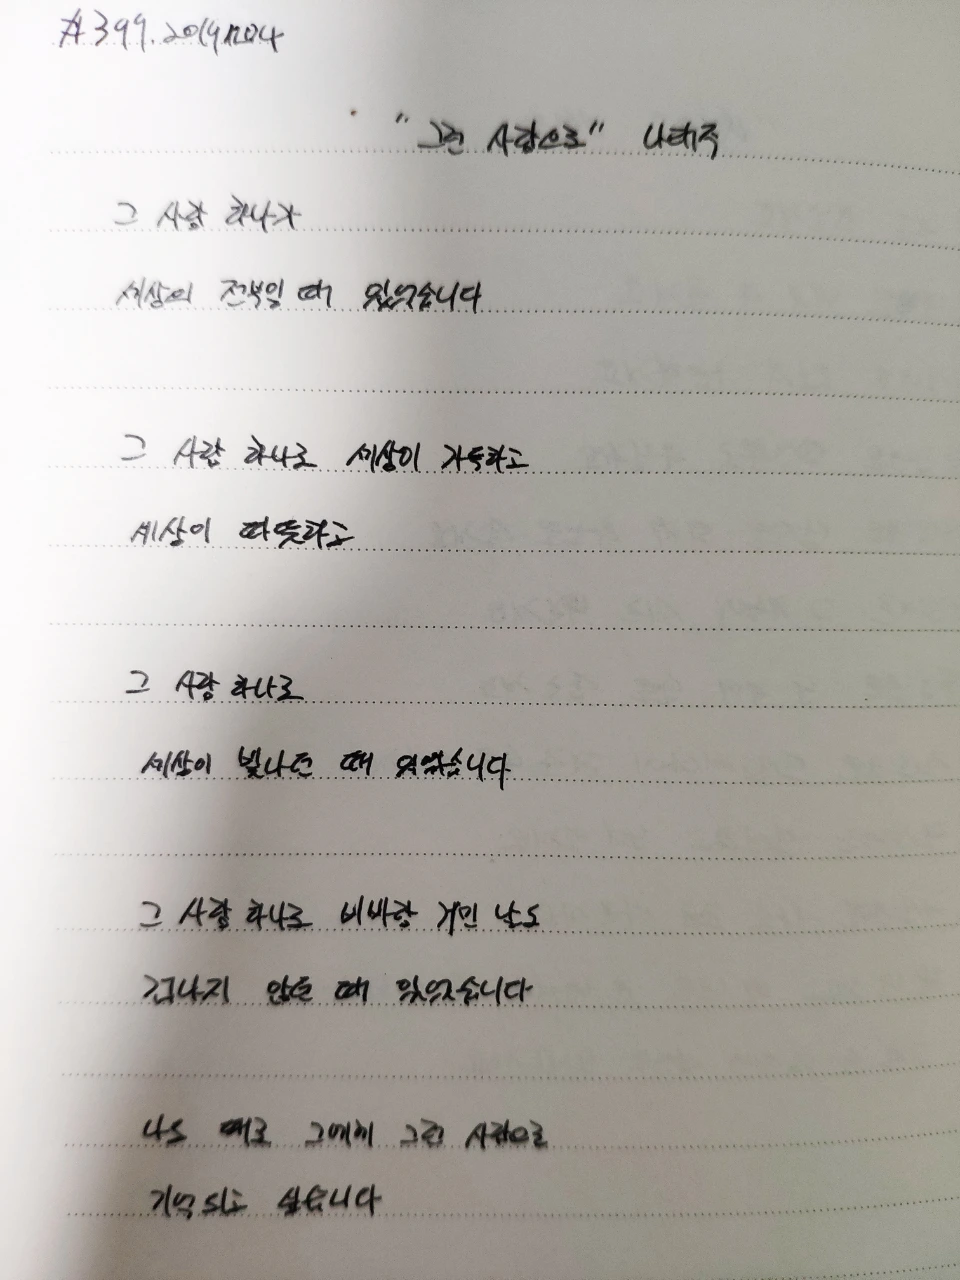 #399. 20191024
"그런 사람으로" 나태주
그 사람 하나가
세상의 전부일 때 있었습니다
그 사람 하나로 세상이 가득하고
세상이 따뜻하고
그 사람 하나로
세상이 빛나던 때 있었습니다
그 사람 하나로 비바람 거센 날도
겁나지 않던 때 있었습니다
나도 때로 그에게 그런 사람으로
기억되고 싶습니다